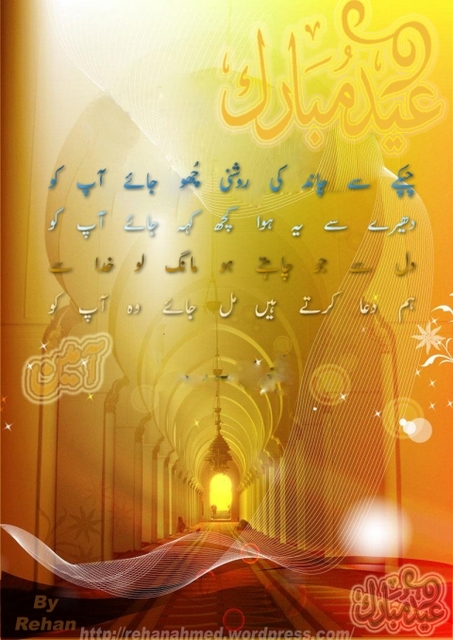 عید مبارک
چپکے سے چاند کی روشنی چُھو جائے آپ کو
دھیرے سے یہ ہوا کچھ کہہ جائے آپ کو
دل سے جو چاہتے ہو مانگ لو خدا سے
ہم دُعا کرتے ہیں مل جائے وہ آپ کو
آمین
عید مبارک
By
Rehan
http://rehanahmed.wordpress.com/